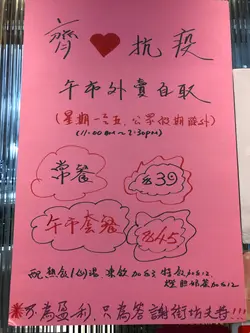 齊❤抗疫
午市外賣自取
(星期一至五,公眾假期除外)
(11:00am~2:30pm)
常餐 $39
午市套餐 $45
配熱飲1份湯,凍飲加$3 特飲加$12
為盈利,只為答謝街坊夫妻!!!